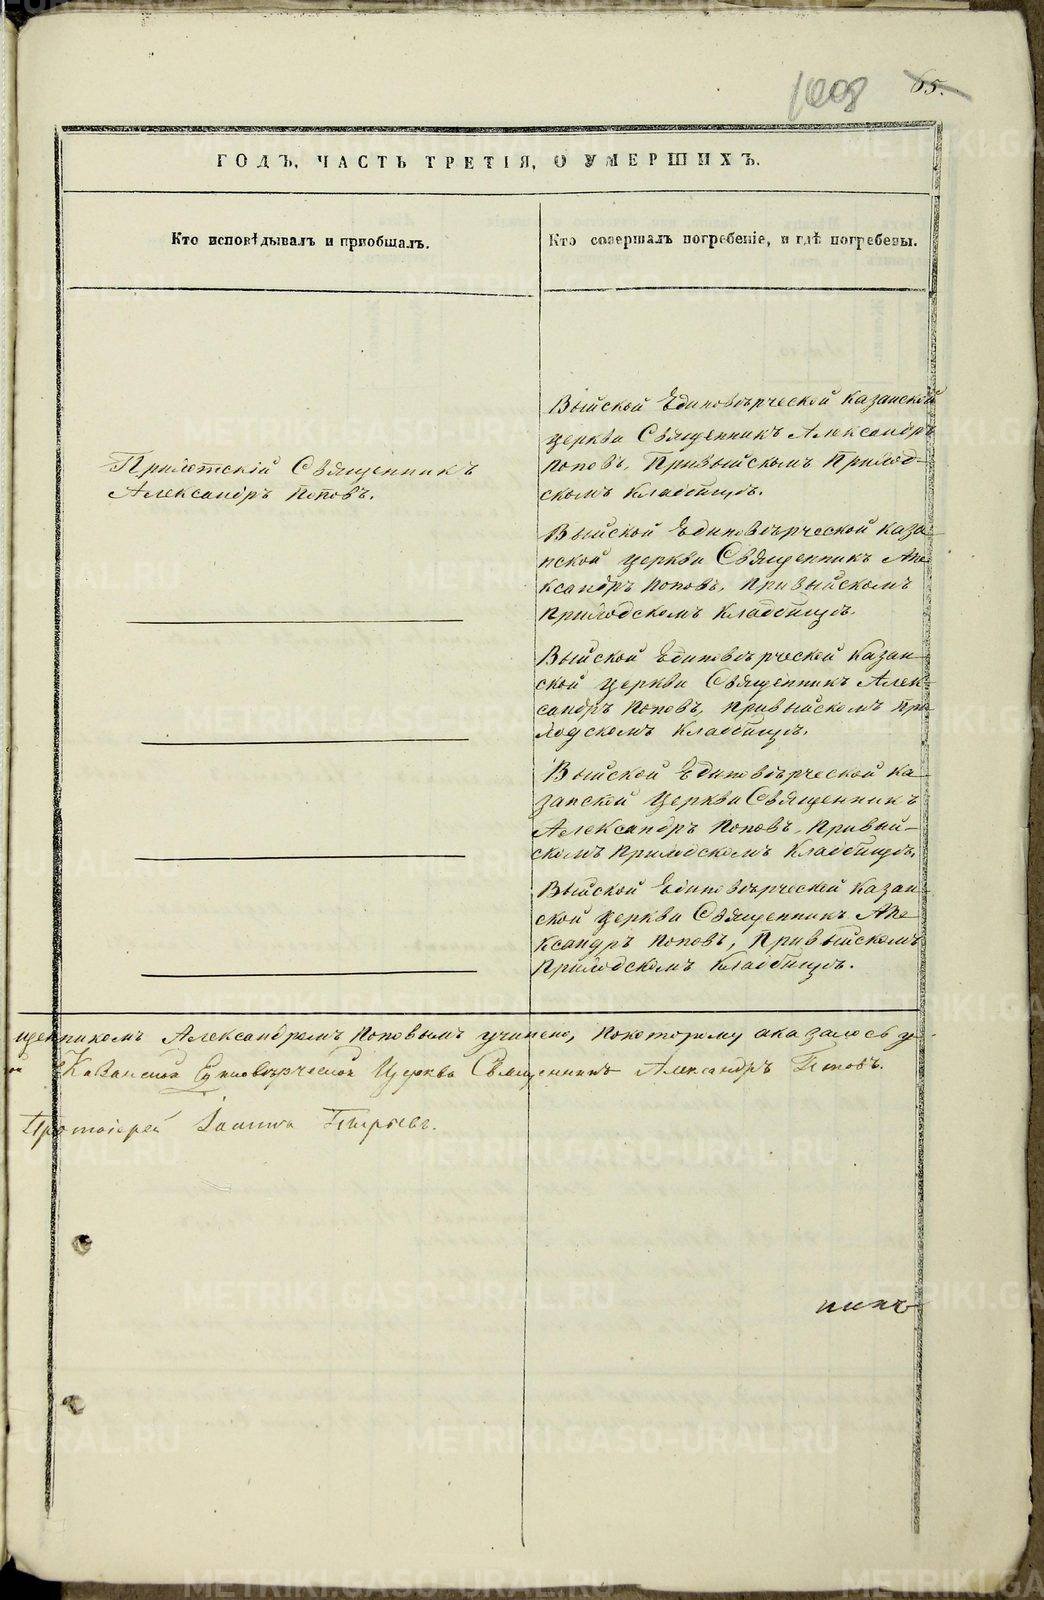 1008 65.
ГОДЪ, ЧАСТЬ ТРЕТІЯ, О УМЕРШИХЪ.
Кто исповѣдывалъ и приобщалъ.
Кто совершалъ погребеніе, и гдѣ погребены.
Прихотскій Священникъ
Александръ Поповъ.
Выйской Единовѣрческой Казанской
церкви Священникъ Александръ
Поповъ, Привыйскомъ Приход-
скомъ Кладбищѣ.
Выйской Единовѣрческой Каза-
нской церкви Священникъ Але
ксандръ Поповъ, Привыйскомъ
Приходскомъ Кладбищѣ.
Выйской Единовѣрческой Казан-
ской церкви Священникъ Алек-
сандръ Поповъ, Привыйскомъ При
ходскомъ Кладбищѣ.
Выйской Единовѣрческой Ка-
занской Церкви Священникъ
Александръ Поповъ, Привый-
скомъ Приходскомъ Кладбищѣ.
Выйской Единовѣрческой Казан-
ской церкви Священникъ Але-
ксандръ Поповъ, Привыйскомъ
Приходскомъ Кладбищѣ.
щенникомъ Александромъ Поповымъ учинено, покоторому аказалось у-
й Казанской Единовѣрческой Церкви Священникъ Александръ Поповъ.
Протоіерей Іоаннъ
никъ
METRIKI.GASO-URAL.RU